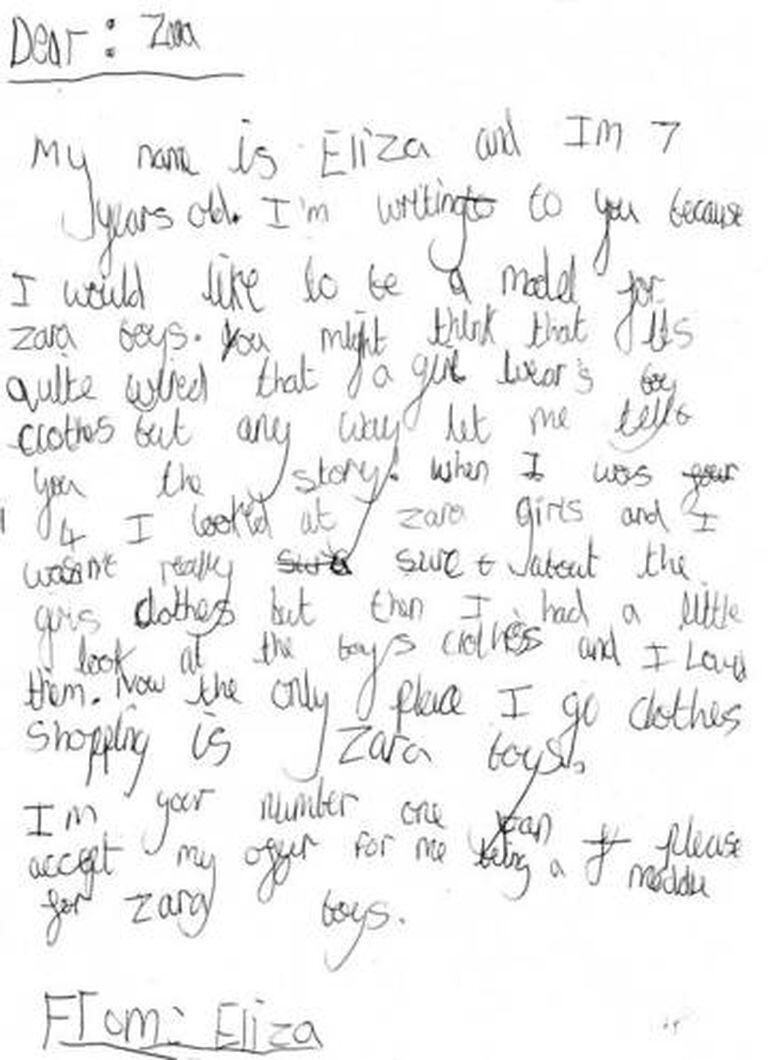 Dear: Zara
My name is Eliza and Im 7
years old. I'm writing to to you because
I would like to be a model for
zara boys. You might think that its
quite wired that a girl wear's boy
clothes but any way let me tell
you the story. when I was four
4 I looked at zara girls and I
wasn't really sure sure about the
girls clothes but then I had a little
look at the boys clothes and I Loved
them. Now the only place I go clothes
shopping is Zara boys.
Im your number one fan
accept my offer for me being a please
moddle
for zara boys.
From: Eliza